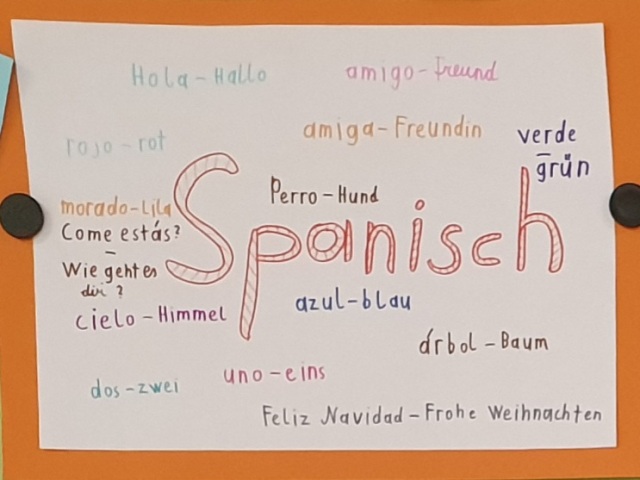 Hola - Hallo
amigo - Freund
rojo - rot
amiga - Freundin
verde
– grün
morado - Lila
Perro - Hund
Come estás?
–
Wie geht es
dir?
Spanisch
cielo - Himmel
azul - blau
árbol - Baum
dos - zwei
uno - eins
Feliz Navidad - Frohe Weihnachten